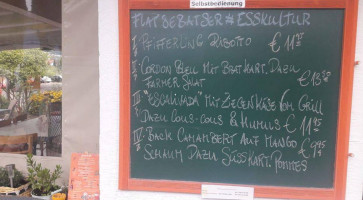 Selbstbedienung
FLAT DE BATSER # ESSKULTUR
I PFIFFERLING RISOTTO € 11
II CORDON BLEU MIT BRATKART. DAZU
FARMER SALAT € 13
III "ESCALIVADA" MIT ZIEGENKÄSE VOM GRILL
DAZU COUS-COUS & HUMUS € 11 95
IV BACK CAMAMBERT AUF MANGO
SCHAUM DAZU SÜSSKART. POMMES € 9 95